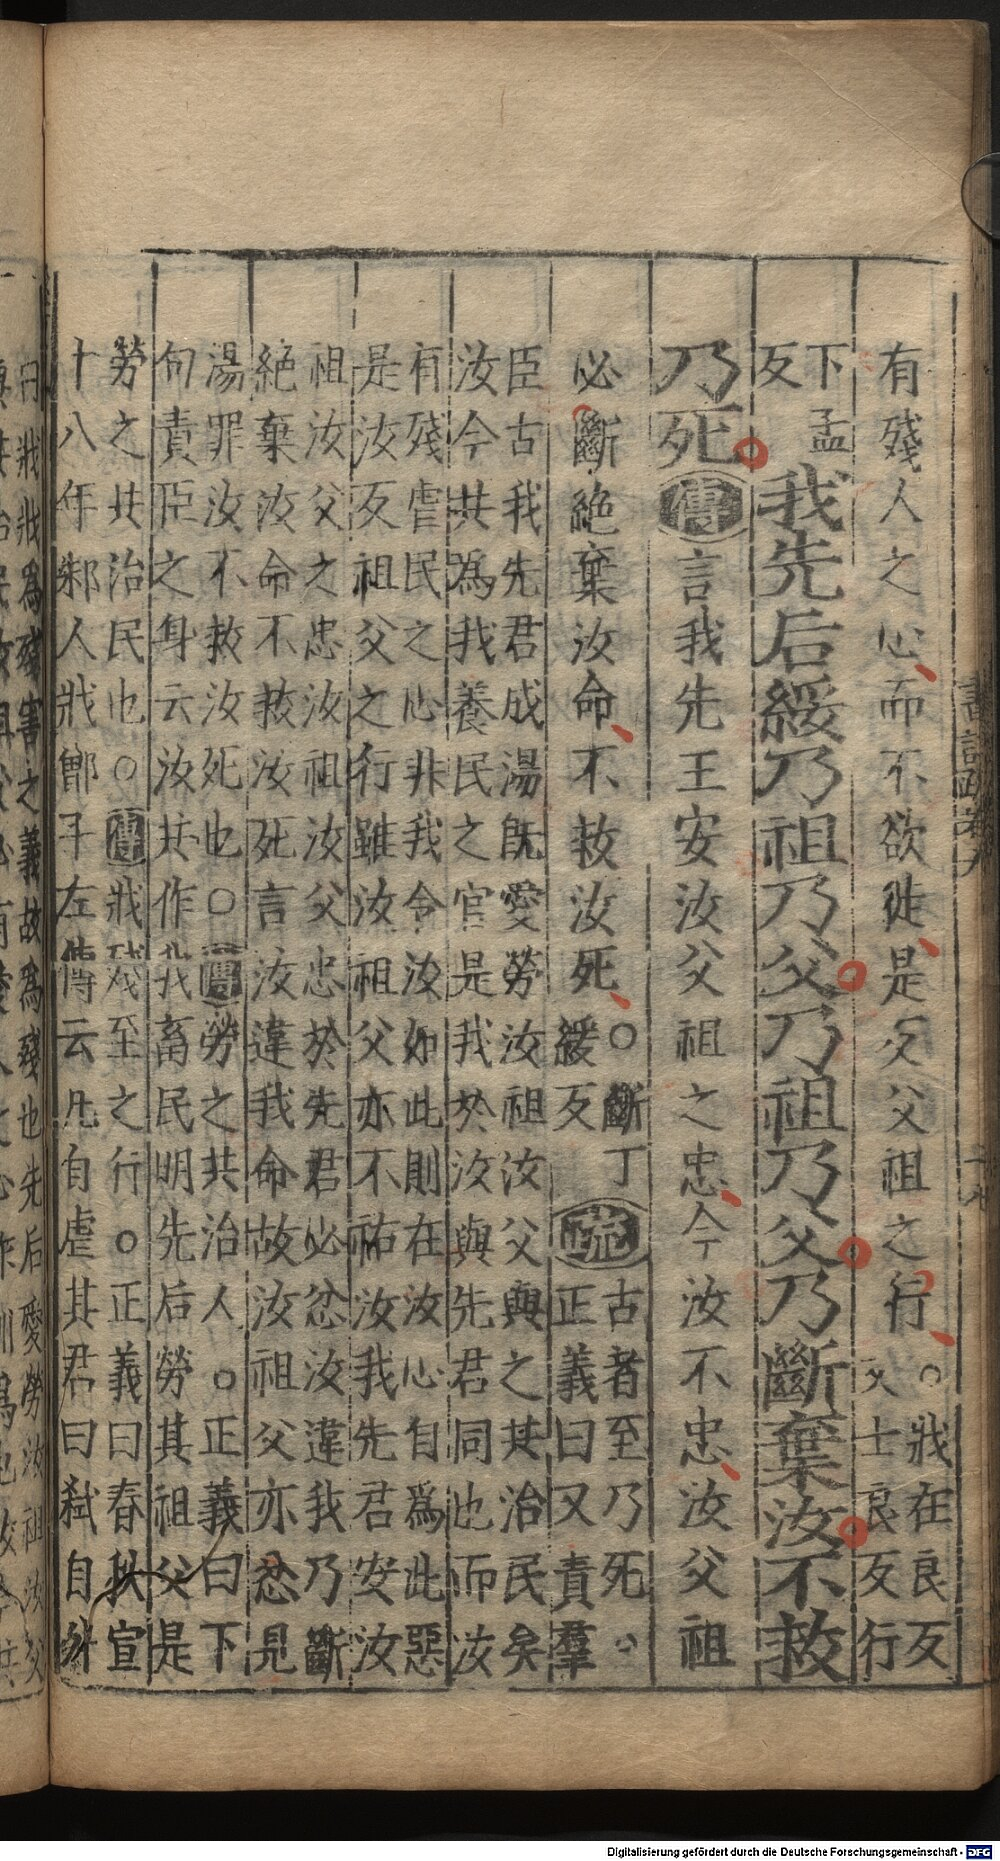 有殘人之心而不欲徙是反父祖之行。戕在良反
又士良反行
下孟
反
我先后綏乃祖乃父乃祖乃父乃斷棄汝不救
乃死傳言我先王安汝父祖之忠今汝不忠汝父祖
必斷絕棄汝命不救汝死○斷丁
緩反
疏古者至乃死。
正義曰又責羣
臣古我先君成湯既愛勞汝祖汝父與之共治民矣
汝今共爲我養民之官是我於汝與先君同也而汝
有殘虐民之心非我令汝如此則在汝心自爲此惡
是汝反祖父之行雖汝祖父亦不祐汝我先君安汝
祖汝父之忠汝祖汝父忠於先君必忿汝違我乃斷
絕棄汝命不救汝死言汝違我命故汝祖父亦忿見
湯罪汝不救汝死也○傳勞之共治人。正義曰下
句責臣之身云汝共作我畜民明先后勞其祖父是
勞之共治民也○傳戕殘至之行。正義曰春秋宣
十八年邾人戕鄫子左傳云凡自虐其君曰弒自外
曰戕戕爲殘害之義故爲殘也先后愛勞汝祖汝父
Digitalisierung gefördert durch die Deutsche Forschungsgemeinschaft - DFG